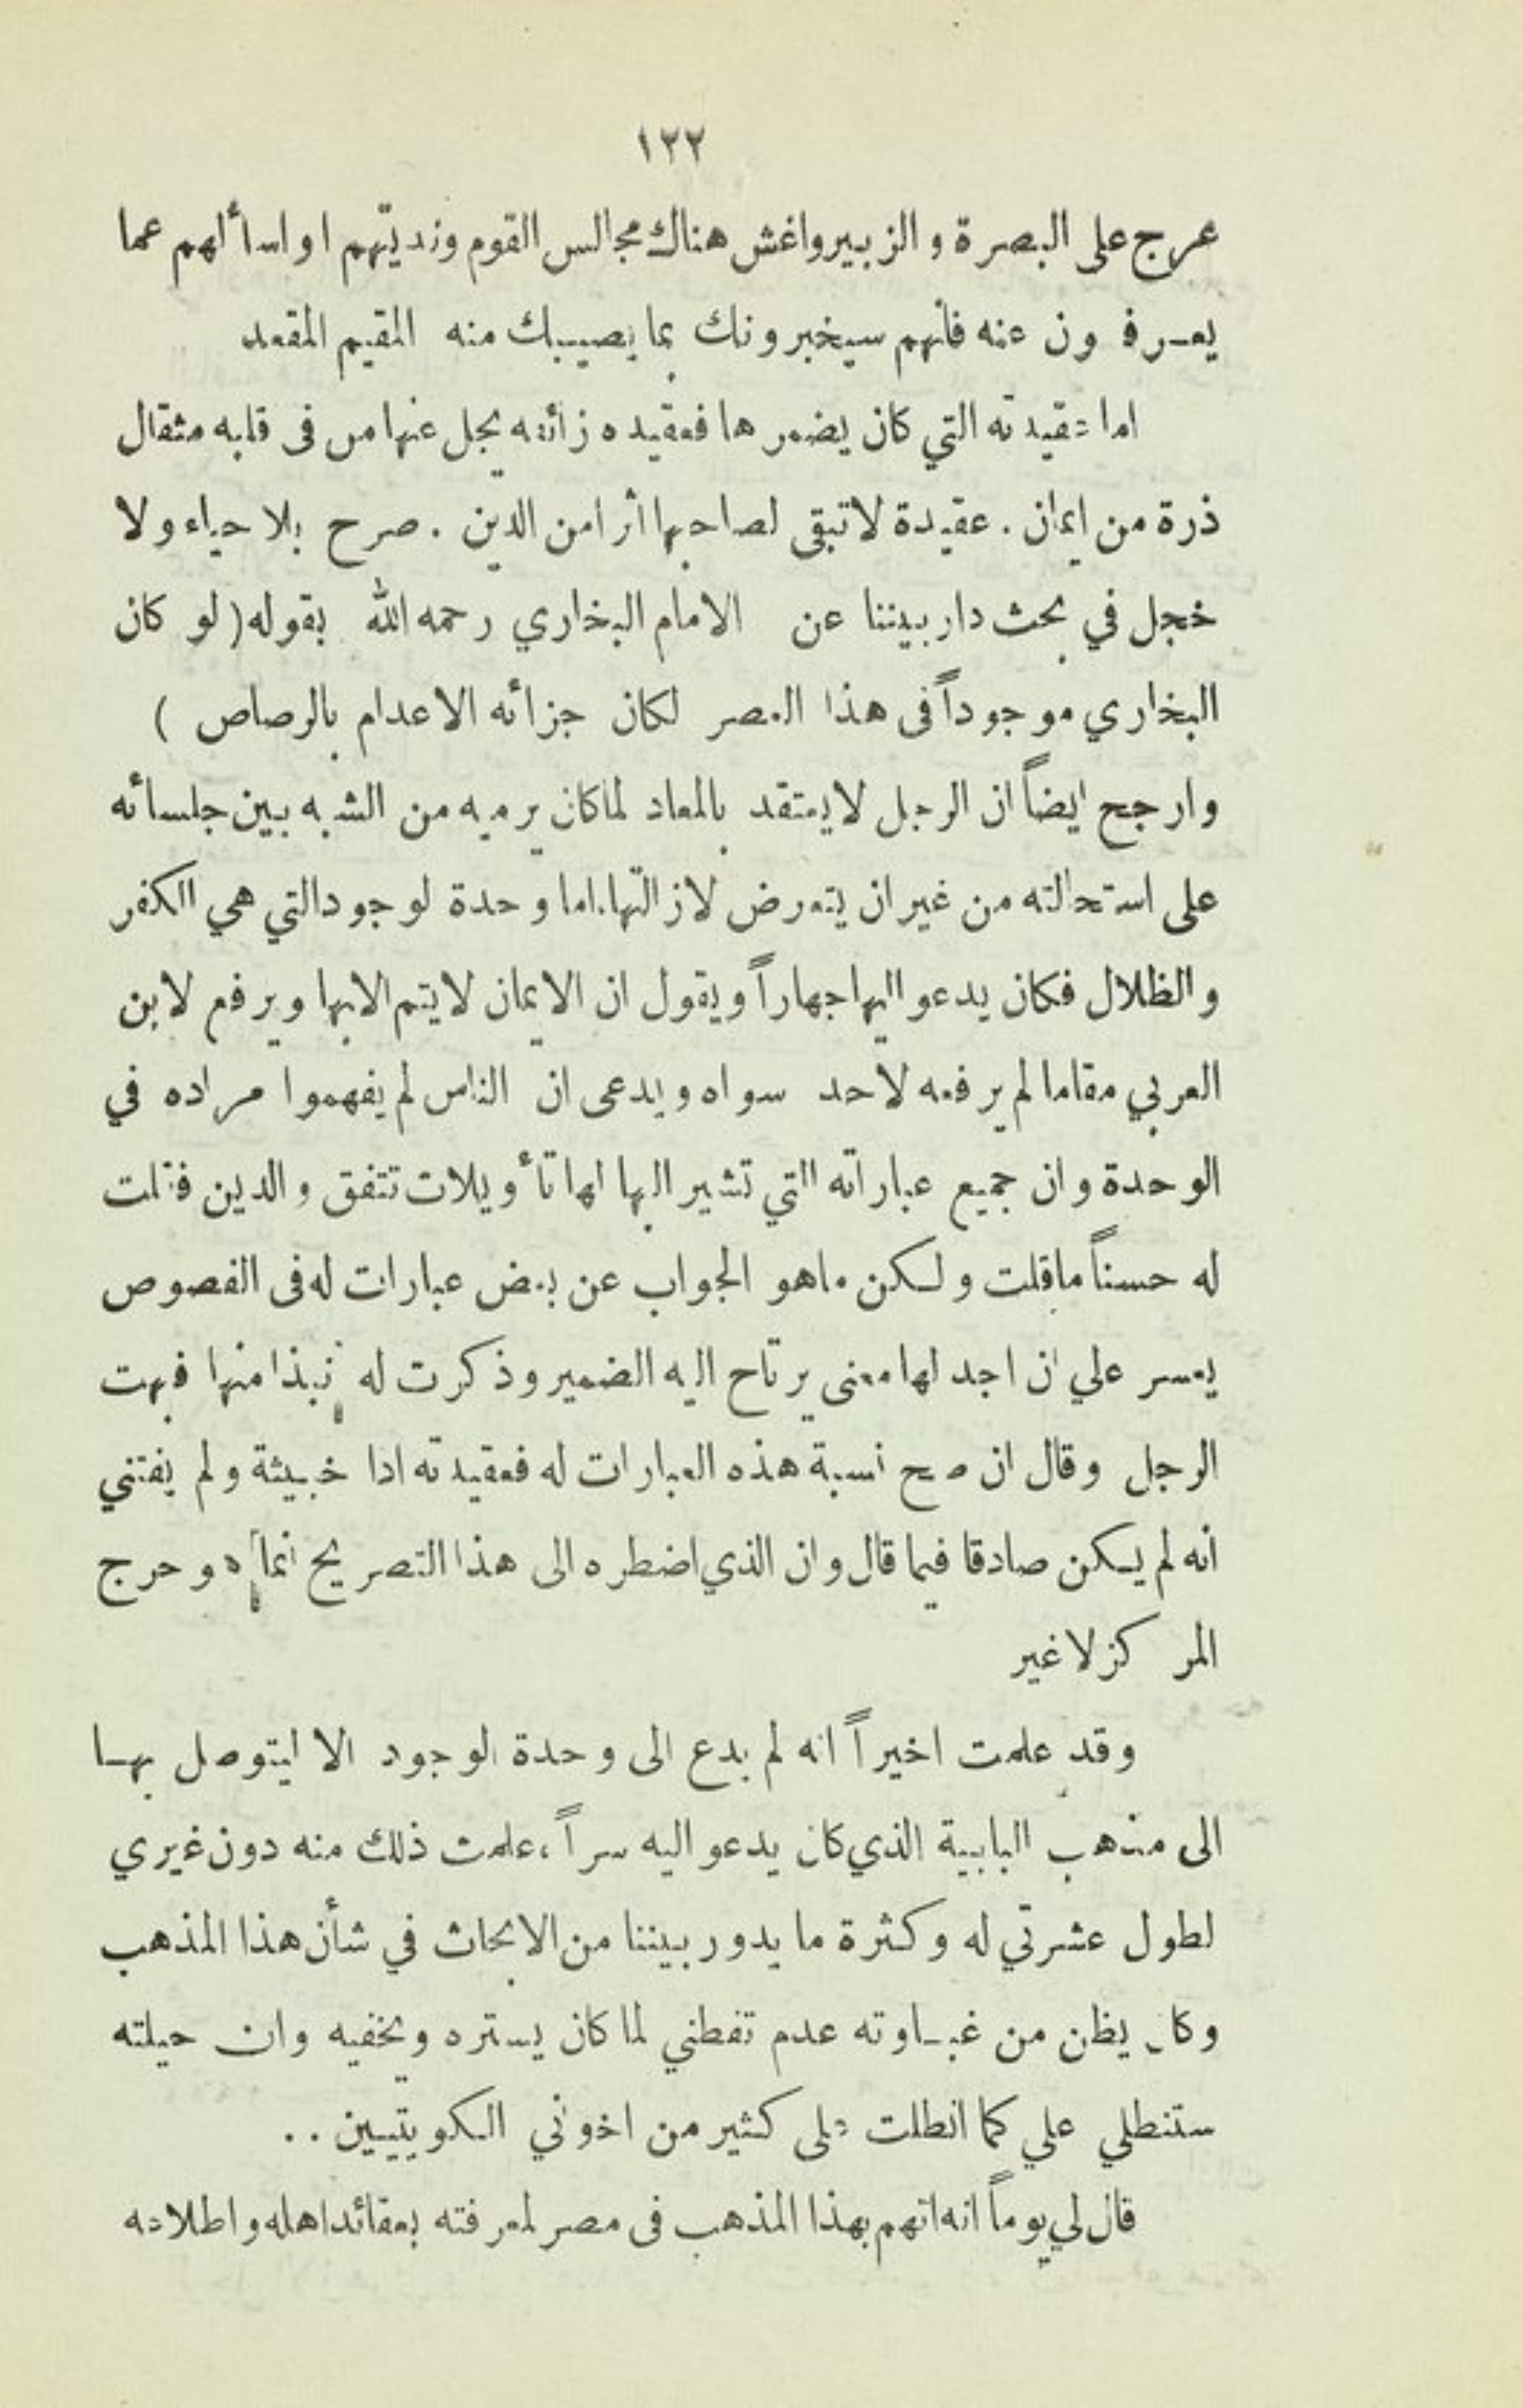 ١٢٢
عرج على البصرة والزبير واغش هناك مجالس القوم ونديتهم او اسألهم عما
يعرفون عنه فانهم سيخبرونك بما يصيبك منه المقيم المقعد
اما عقيدته التي كان يضمرها فعقيده زائغه يجل عنها من فى قلبه مثقال
ذرة من ايمان . عقيدة لا تبقى لصاحبها أثرا من الدين . صرح بلا حياء ولا
خجل في بحث دار بيننا عن الامام البخاري رحمه الله بقوله ( لو كان
البخاري موجوداً فى هذا العصر لكان جزائه الاعدام بالرصاص )
وارجح ايضاً ان الرجل لا يعتقد بالمعاد لما كان يرميه من الشبه بين جلسائه
على استحالته من غير ان يتعرض لازالتها . اما وحدة لوجود التي هي الكفر
والظلال فكان يدعو اليها جهاراً ويقول ان الايمان لا يتم الا بها ويرفع لابن
العربي مقاما لم يرفعه لاحد سواه ويدعى ان الناس لم يفهموا مراده في
الوحدة وان جميع عباراته التي تشير اليها لها تأويلات تتفق والدين فقلت
له حسناً ما قلت ولكن ماهو الجواب عن بعض عبارات له فى الفصوص
يعسر علي ان اجد لها معنى يرتاح اليه الضمير وذكرت له نبذا منها فبهت
الرجل وقال ان صح نسبة هذه العبارات له فعقيدته اذا خبيثة ولم يفتني
انه لم يكن صادقا فيما قال وان الذي اضطره الى هذا التصريح انما هو حرج
المركز لا غير
وقد علمت اخيراً انه لم يدع الى وحدة الوجود الا ليتوصل بها
الى مذهب البابية الذي كان يدعو اليه سراً ، علمت ذلك منه دون غيري
لطول عشرتي له وكثرة ما يدور بيننا من الابحاث في شأن هذا المذهب
وكان يظن من غباوته عدم تفطني لما كان يستره ويخفيه وان حيلته
ستنطلي علي كما انطلت على كثير من اخوني الكويتيين . .
قال لي يوماً انه اتهم بهذا المذهب فى مصر لمعرفته بعقائد اهله واطلاعه